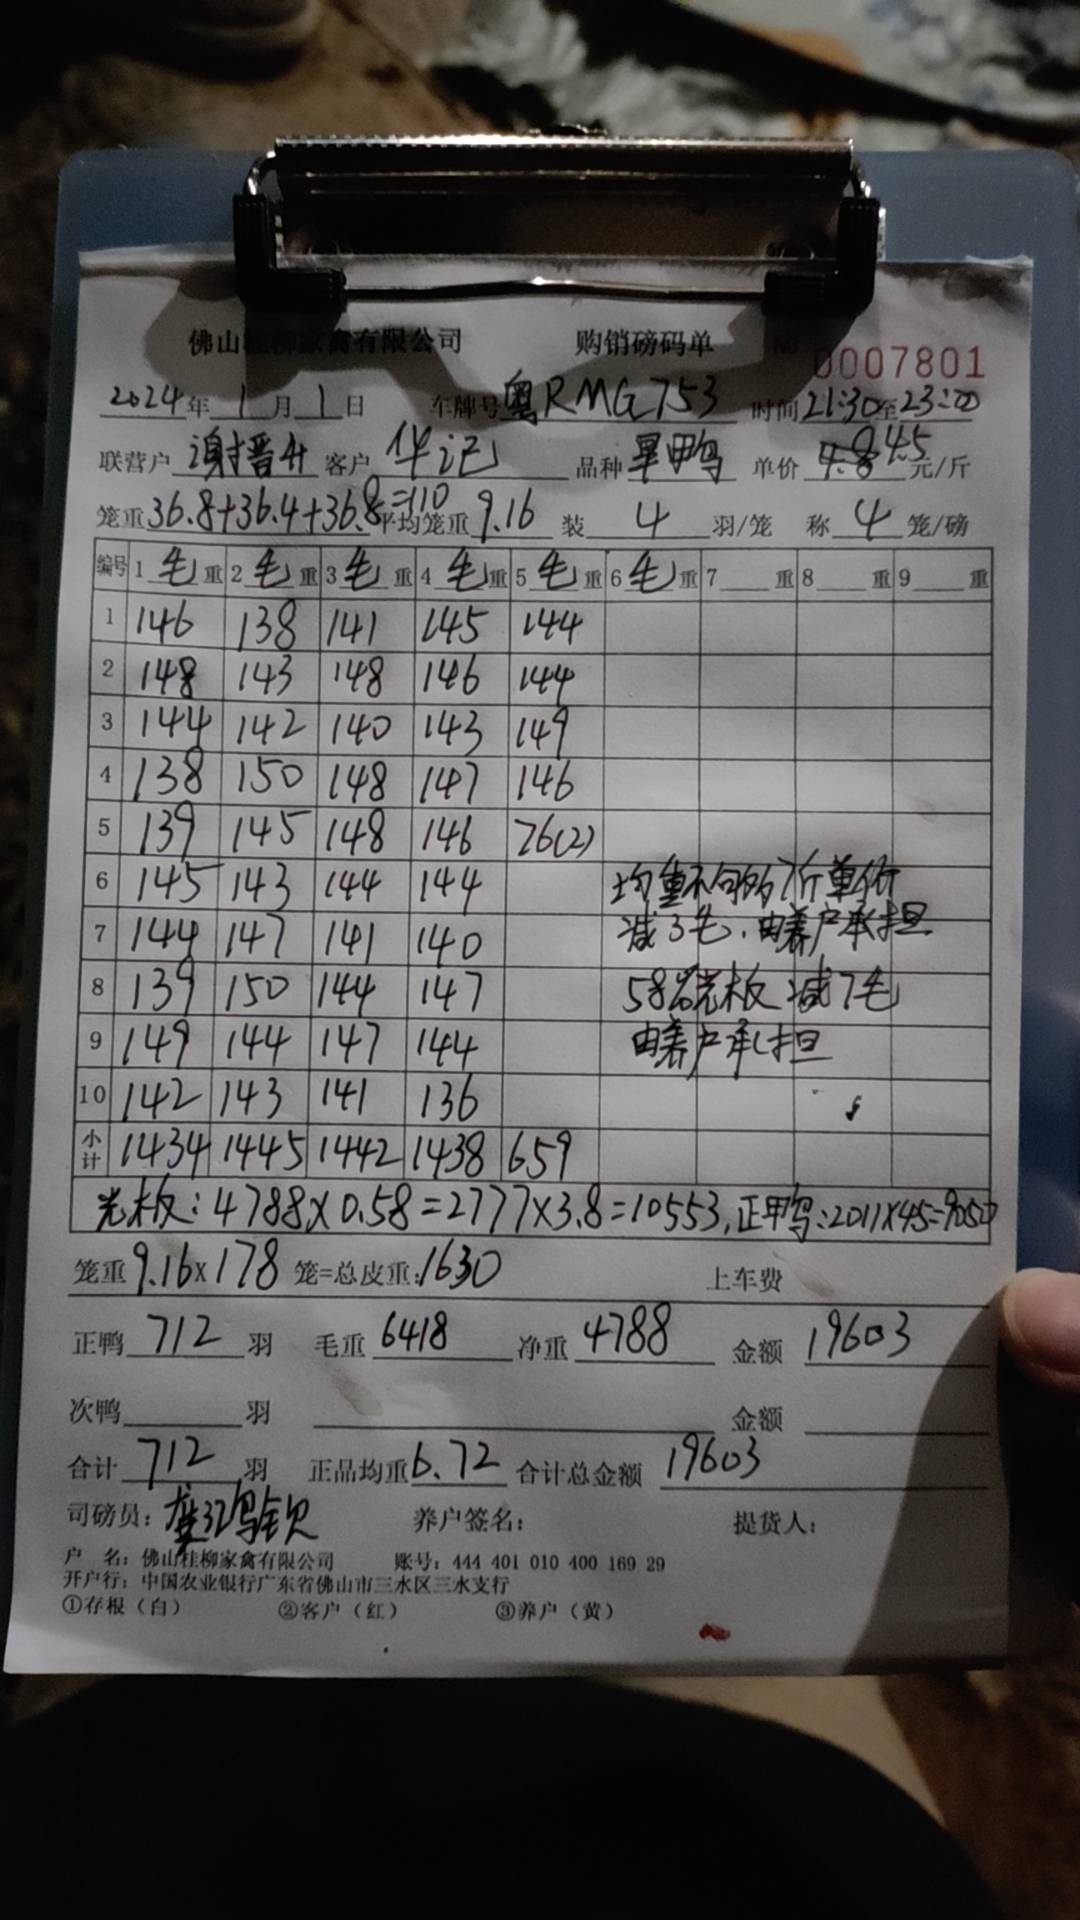 佛山桂柳家禽有限公司 购销磅码单 NO 0007801
2024年1月1日 车牌号粤RMG753 时间21:30至23:00
联营户谢晋升 客户华记 品种旱鸭 单价4.8 4.5元/斤
笼重36.8+36.4+36.8=110 平均笼重9.16 装4羽/笼 称4笼/磅
编号 1毛重 2毛重 3毛重 4毛重 5毛重 6毛重 7重 8重 9重
1 146 138 141 145 144
2 148 143 148 146 144
3 144 142 140 143 149
4 138 150 148 147 146
5 139 145 148 146 76(2)
6 145 143 144 144 均重不够 7斤单价
7 144 147 141 140 减3毛.由养户承担
8 139 150 144 147 58%光板 减7毛
9 149 144 147 144 由养户承担
10 142 143 141 136
小计 1434 1445 1442 1438 659
光板:4788×0.58=2777×3.8=10553,正甲鸟:2011×4.5=9050
笼重9.16×178笼=总皮重:1630 上车费
正鸭712羽 毛重6418 净重4788 金额19603
次鸭 羽 金额
合计712羽 正品均重6.72 合计总金额19603
司磅员: 养户签名: 提货人:
户 名:佛山桂柳家禽有限公司 账号:444 401 010 400 169 29
开户行:中国农业银行广东省佛山市三水区三水支行
①存根(白) ②客户(红) ③养户(黄)